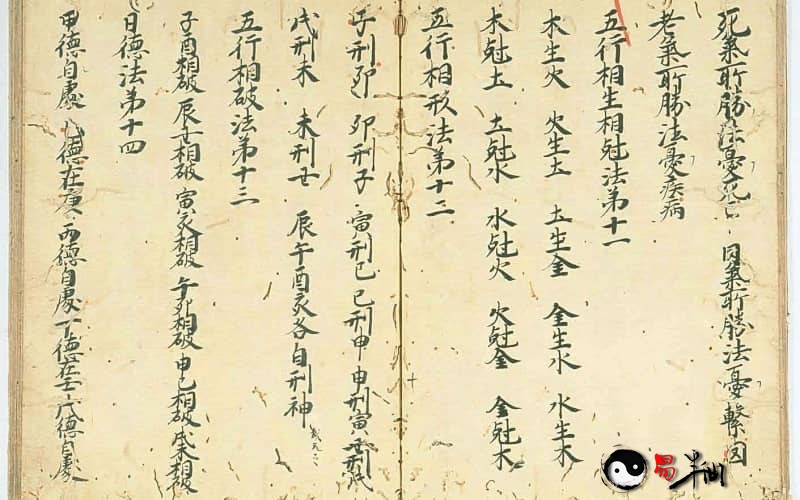 死氣所勝法憂死亡 囚氣所勝法憂繫囚
老氣所勝法憂疾病
五行相生相尅法第十一
木生火 火生土 土生金 金生水 水生木
木尅土 土尅水 水尅火 火尅金 金尅木
五行相形法第十二
子刑卯 卯刑子 寅刑巳 巳刑申 申刑寅 丑刑戌
戌刑未 未刑丑 辰午酉亥各自刑神
五行相破法第十三
子酉相破 辰丑相破 寅亥相破 午卯相破 申巳相破 戌未相破
日德法第十四
甲德自處 乙德在庚 丙德自處 丁德在壬 戊德自處
易半仙